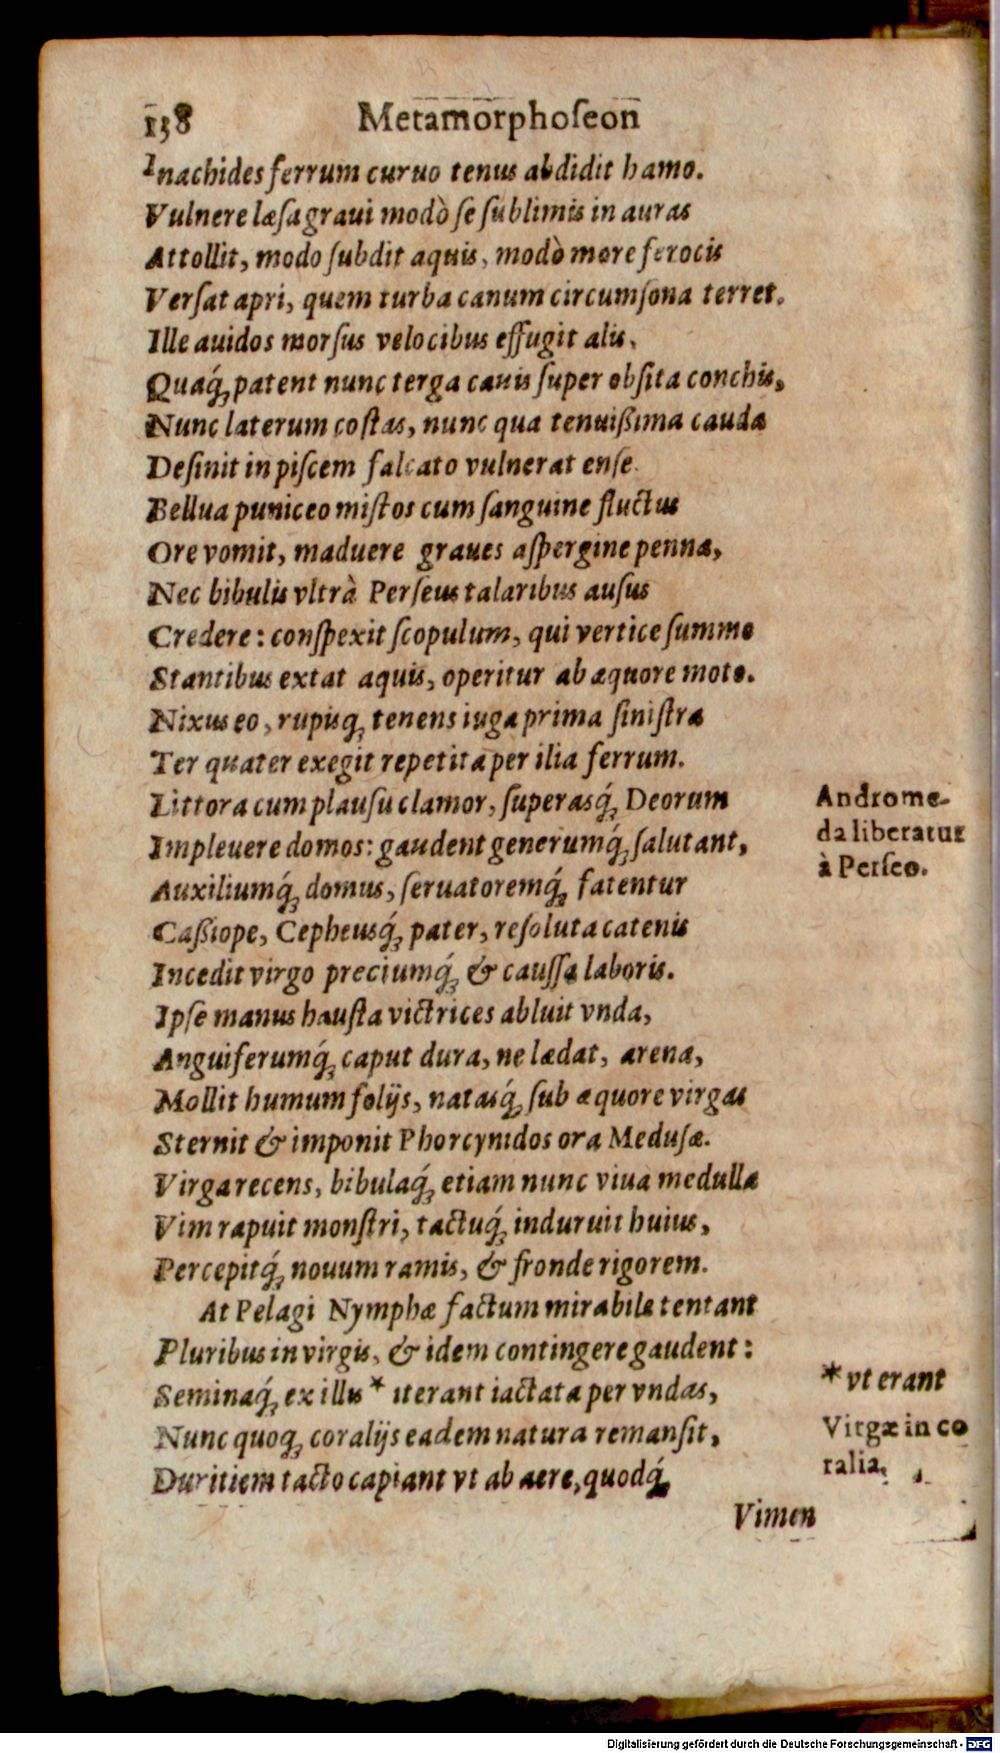 138 Metamorphoſeon
Inachides ferrum curuo tenus abdidit hamo.
Vulnere læſa graui modò ſe ſublimis in auras
Attollit, modo ſubdit aquis, modò more ferocis
Verſat apri, quem turba canum circumſona terret.
Ille auidos morſus velocibus effugit alis,
Quaq́; patent nunc terga cauis ſuper obſita conchis,
Nunc laterum coſtas, nunc qua tenuißima cauda
Deſinit in piſcem falcato vulnerat enſe.
Bellua puniceo miſtos cum ſanguine fluctus
Ore vomit, maduere graues aſpergine pennæ,
Nec bibulis vltrà Perſeus talaribus auſus
Credere: conſpexit ſcopulum, qui vertice ſummo
Stantibus extat aquis, operitur ab æquore moto.
Nixus eo, rupisq; tenens iuga prima ſiniſtra
Ter quater exegit repetita per ilia ferrum.
Littora cum plauſu clamor, ſuperasq́; Deorum
Impleuere domos: gaudent generumq́; ſalutant,
Auxiliumq́; domus, ſeruatoremq́; fatentur
Caßiope, Cepheusq́; pater, reſoluta catenis
Incedit virgo preciumq́; & cauſſa laboris.
Ipſe manus hauſta victrices abluit vnda,
Anguiferumq́; caput dura, ne lædat, arena,
Mollit humum folijs, natasq́; ſub æquore virgas
Sternit & imponit Phorcynidos ora Meduſæ.
Virga recens, bibulaq́; etiam nunc viua medulla
Vim rapuit monſtri, tactuq́; induruit huius,
Percepitq́; nouum ramis, & fronde rigorem.
At Pelagi Nymphæ factum mirabile tentant
Pluribus in virgis, & idem contingere gaudent:
Seminaq́; ex illis * iterant iactata per vndas,
Nunc quoq; coralijs eadem natura remanſit,
Duritiem tacto capiant vt ab aere, quodq́;
Vimen
Androme-
da liberatur
à Perſeo.
* vt erant
Virgæ in co
ralia.
Digitalisierung gefördert durch die Deutsche Forschungsgemeinschaft - DFG